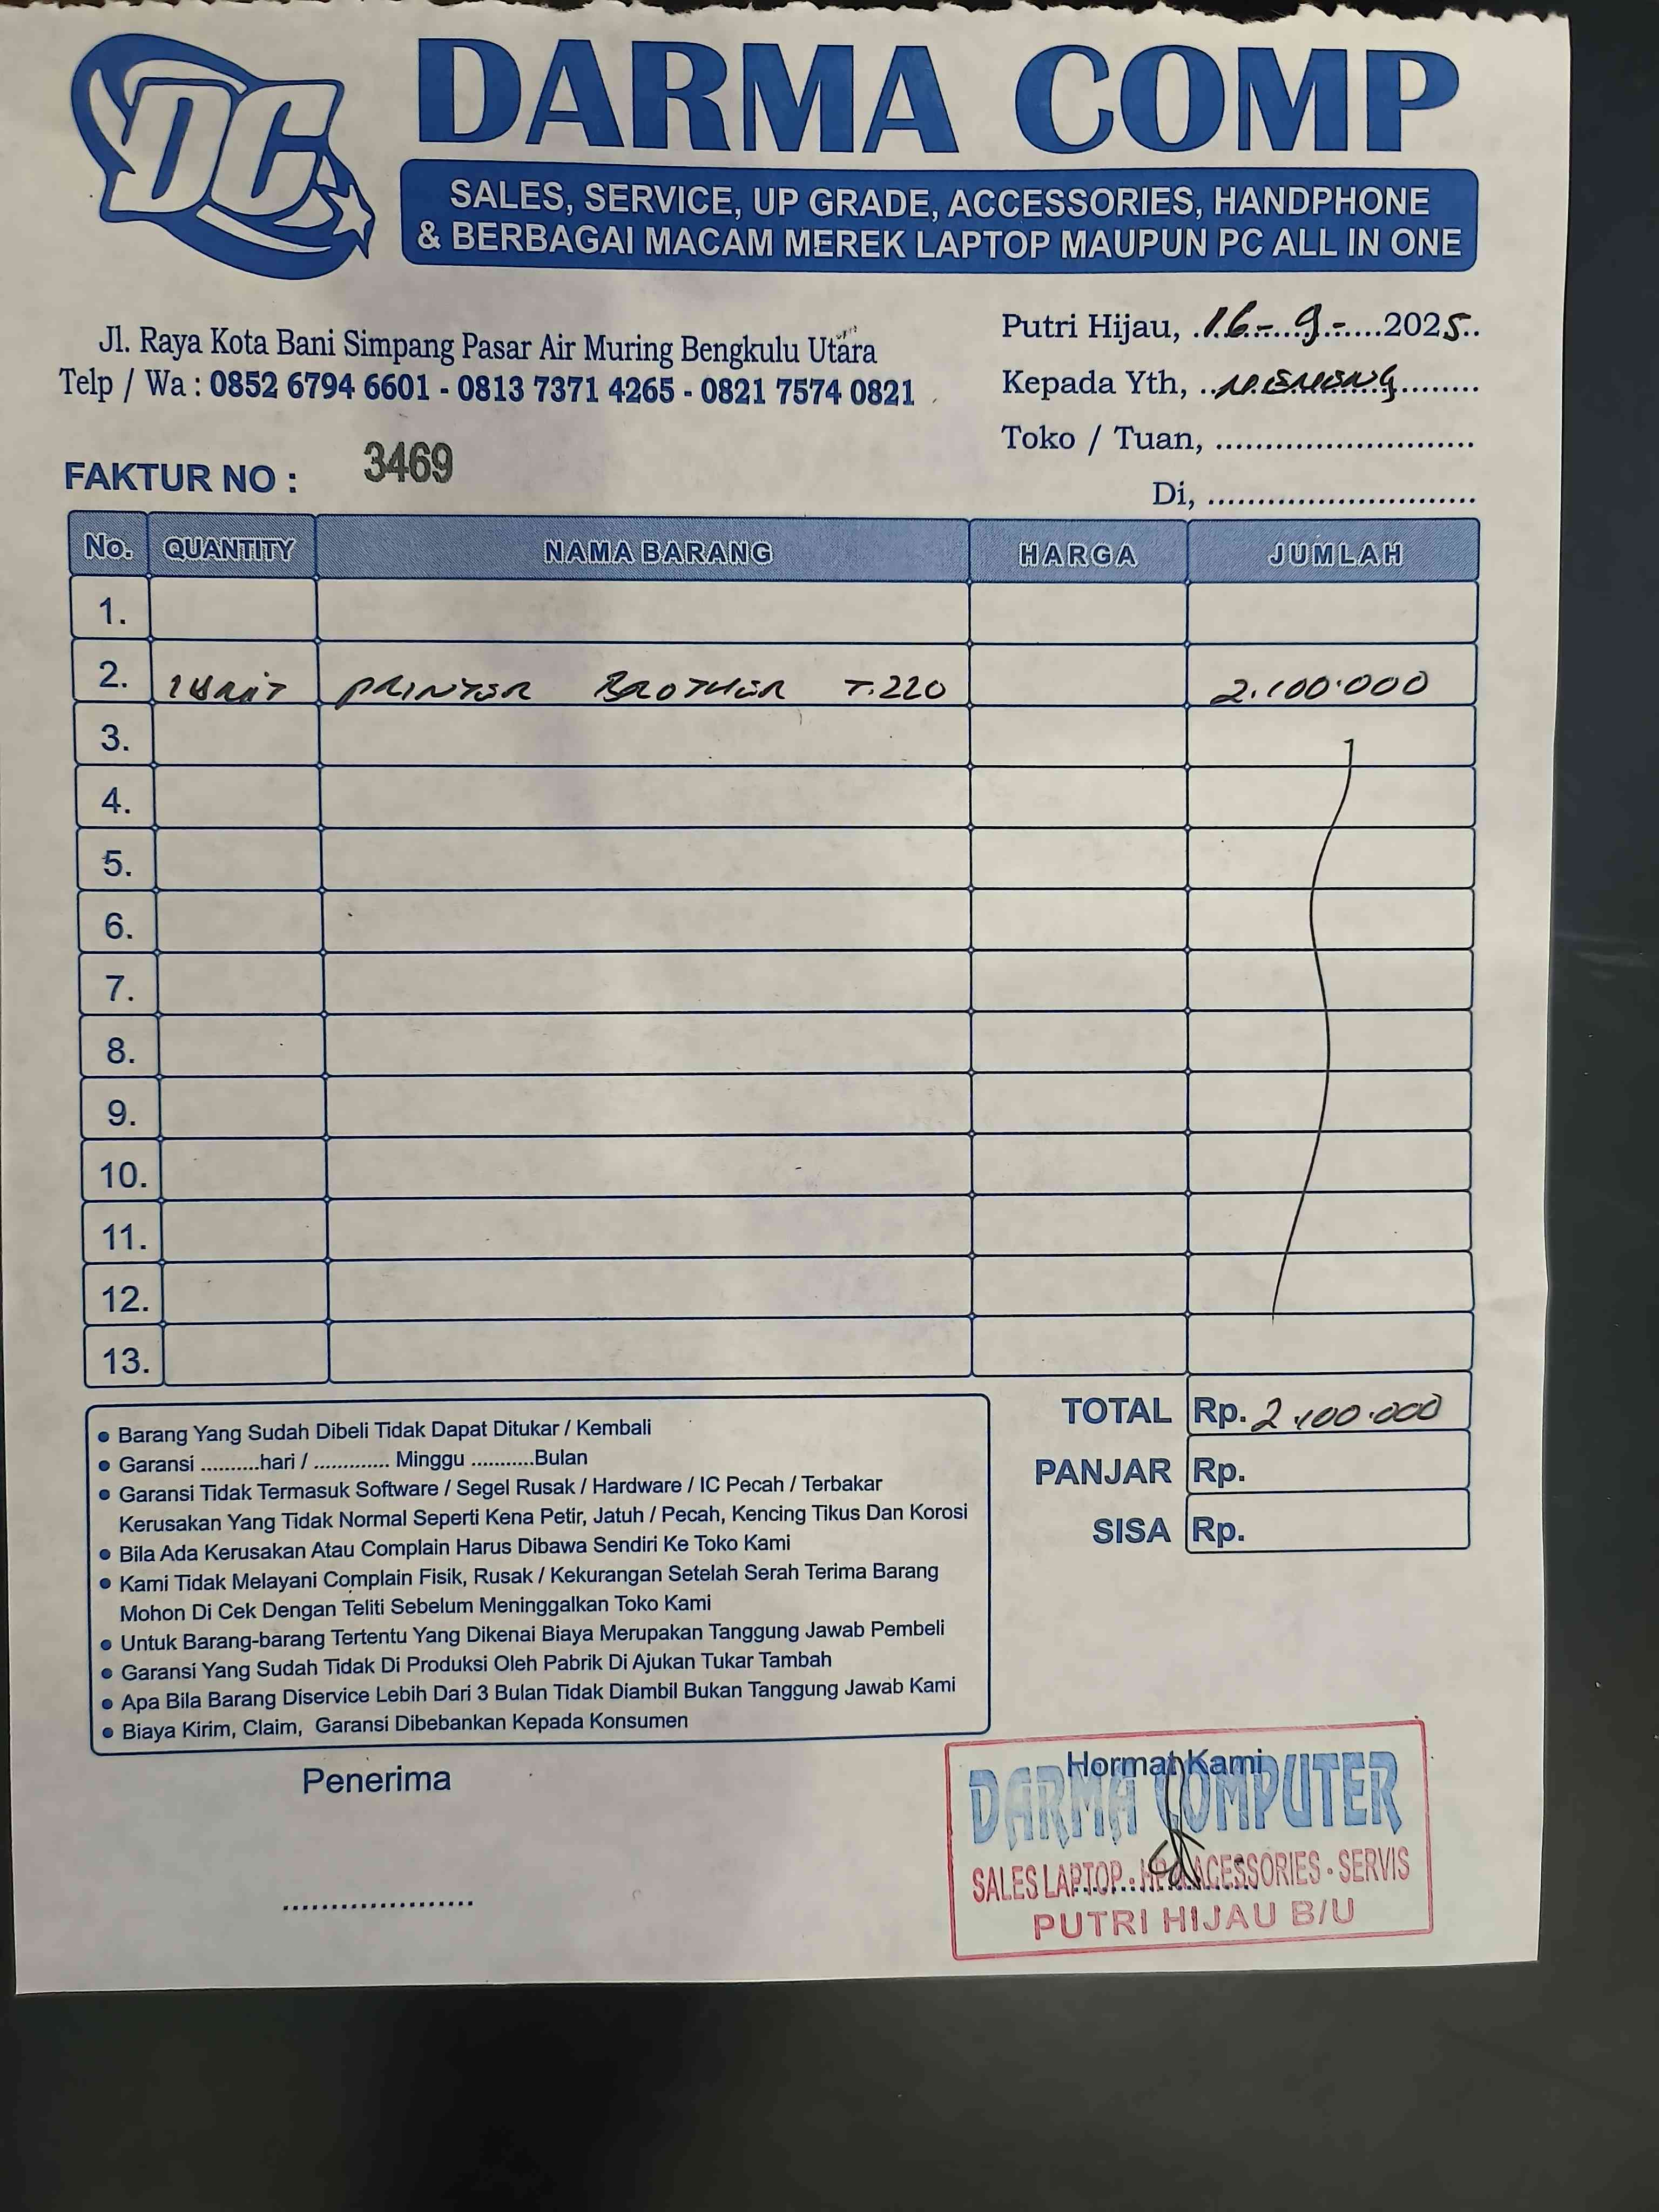 DC
DARMA COMP
SALES, SERVICE, UP GRADE, ACCESSORIES, HANDPHONE
& BERBAGAI MACAM MEREK LAPTOP MAUPUN PC ALL IN ONE
Jl. Raya Kota Bani Simpang Pasar Air Muring Bengkulu Utara
Telp / Wa : 0852 6794 6601 - 0813 7371 4265 - 0821 7574 0821
Putri Hijau, 16 - 9 - 2025
Kepada Yth,
Toko / Tuan, ..........................
Di, ...........................
FAKTUR NO : 3469
No. QUANTITY NAMA BARANG HARGA JUMLAH
1.
2. 1 UNIT PRINTER BROTHER T.220 2.100.000
3.
4.
5.
6.
7.
8.
9.
10.
11.
12.
13.
TOTAL Rp. 2.100.000
PANJAR Rp.
SISA Rp.
• Barang Yang Sudah Dibeli Tidak Dapat Ditukar / Kembali
• Garansi ..........hari / ............. Minggu ...........Bulan
• Garansi Tidak Termasuk Software / Segel Rusak / Hardware / IC Pecah / Terbakar
Kerusakan Yang Tidak Normal Seperti Kena Petir, Jatuh / Pecah, Kencing Tikus Dan Korosi
• Bila Ada Kerusakan Atau Complain Harus Dibawa Sendiri Ke Toko Kami
• Kami Tidak Melayani Complain Fisik, Rusak / Kekurangan Setelah Serah Terima Barang
Mohon Di Cek Dengan Teliti Sebelum Meninggalkan Toko Kami
• Untuk Barang-barang Tertentu Yang Dikenai Biaya Merupakan Tanggung Jawab Pembeli
• Garansi Yang Sudah Tidak Di Produksi Oleh Pabrik Di Ajukan Tukar Tambah
• Apa Bila Barang Diservice Lebih Dari 3 Bulan Tidak Diambil Bukan Tanggung Jawab Kami
• Biaya Kirim, Claim, Garansi Dibebankan Kepada Konsumen
Penerima
....................
Hormat Kami
DARMA COMPUTER
SALES LAPTOP - HP & ACESSORIES - SERVIS
PUTRI HIJAU B/U